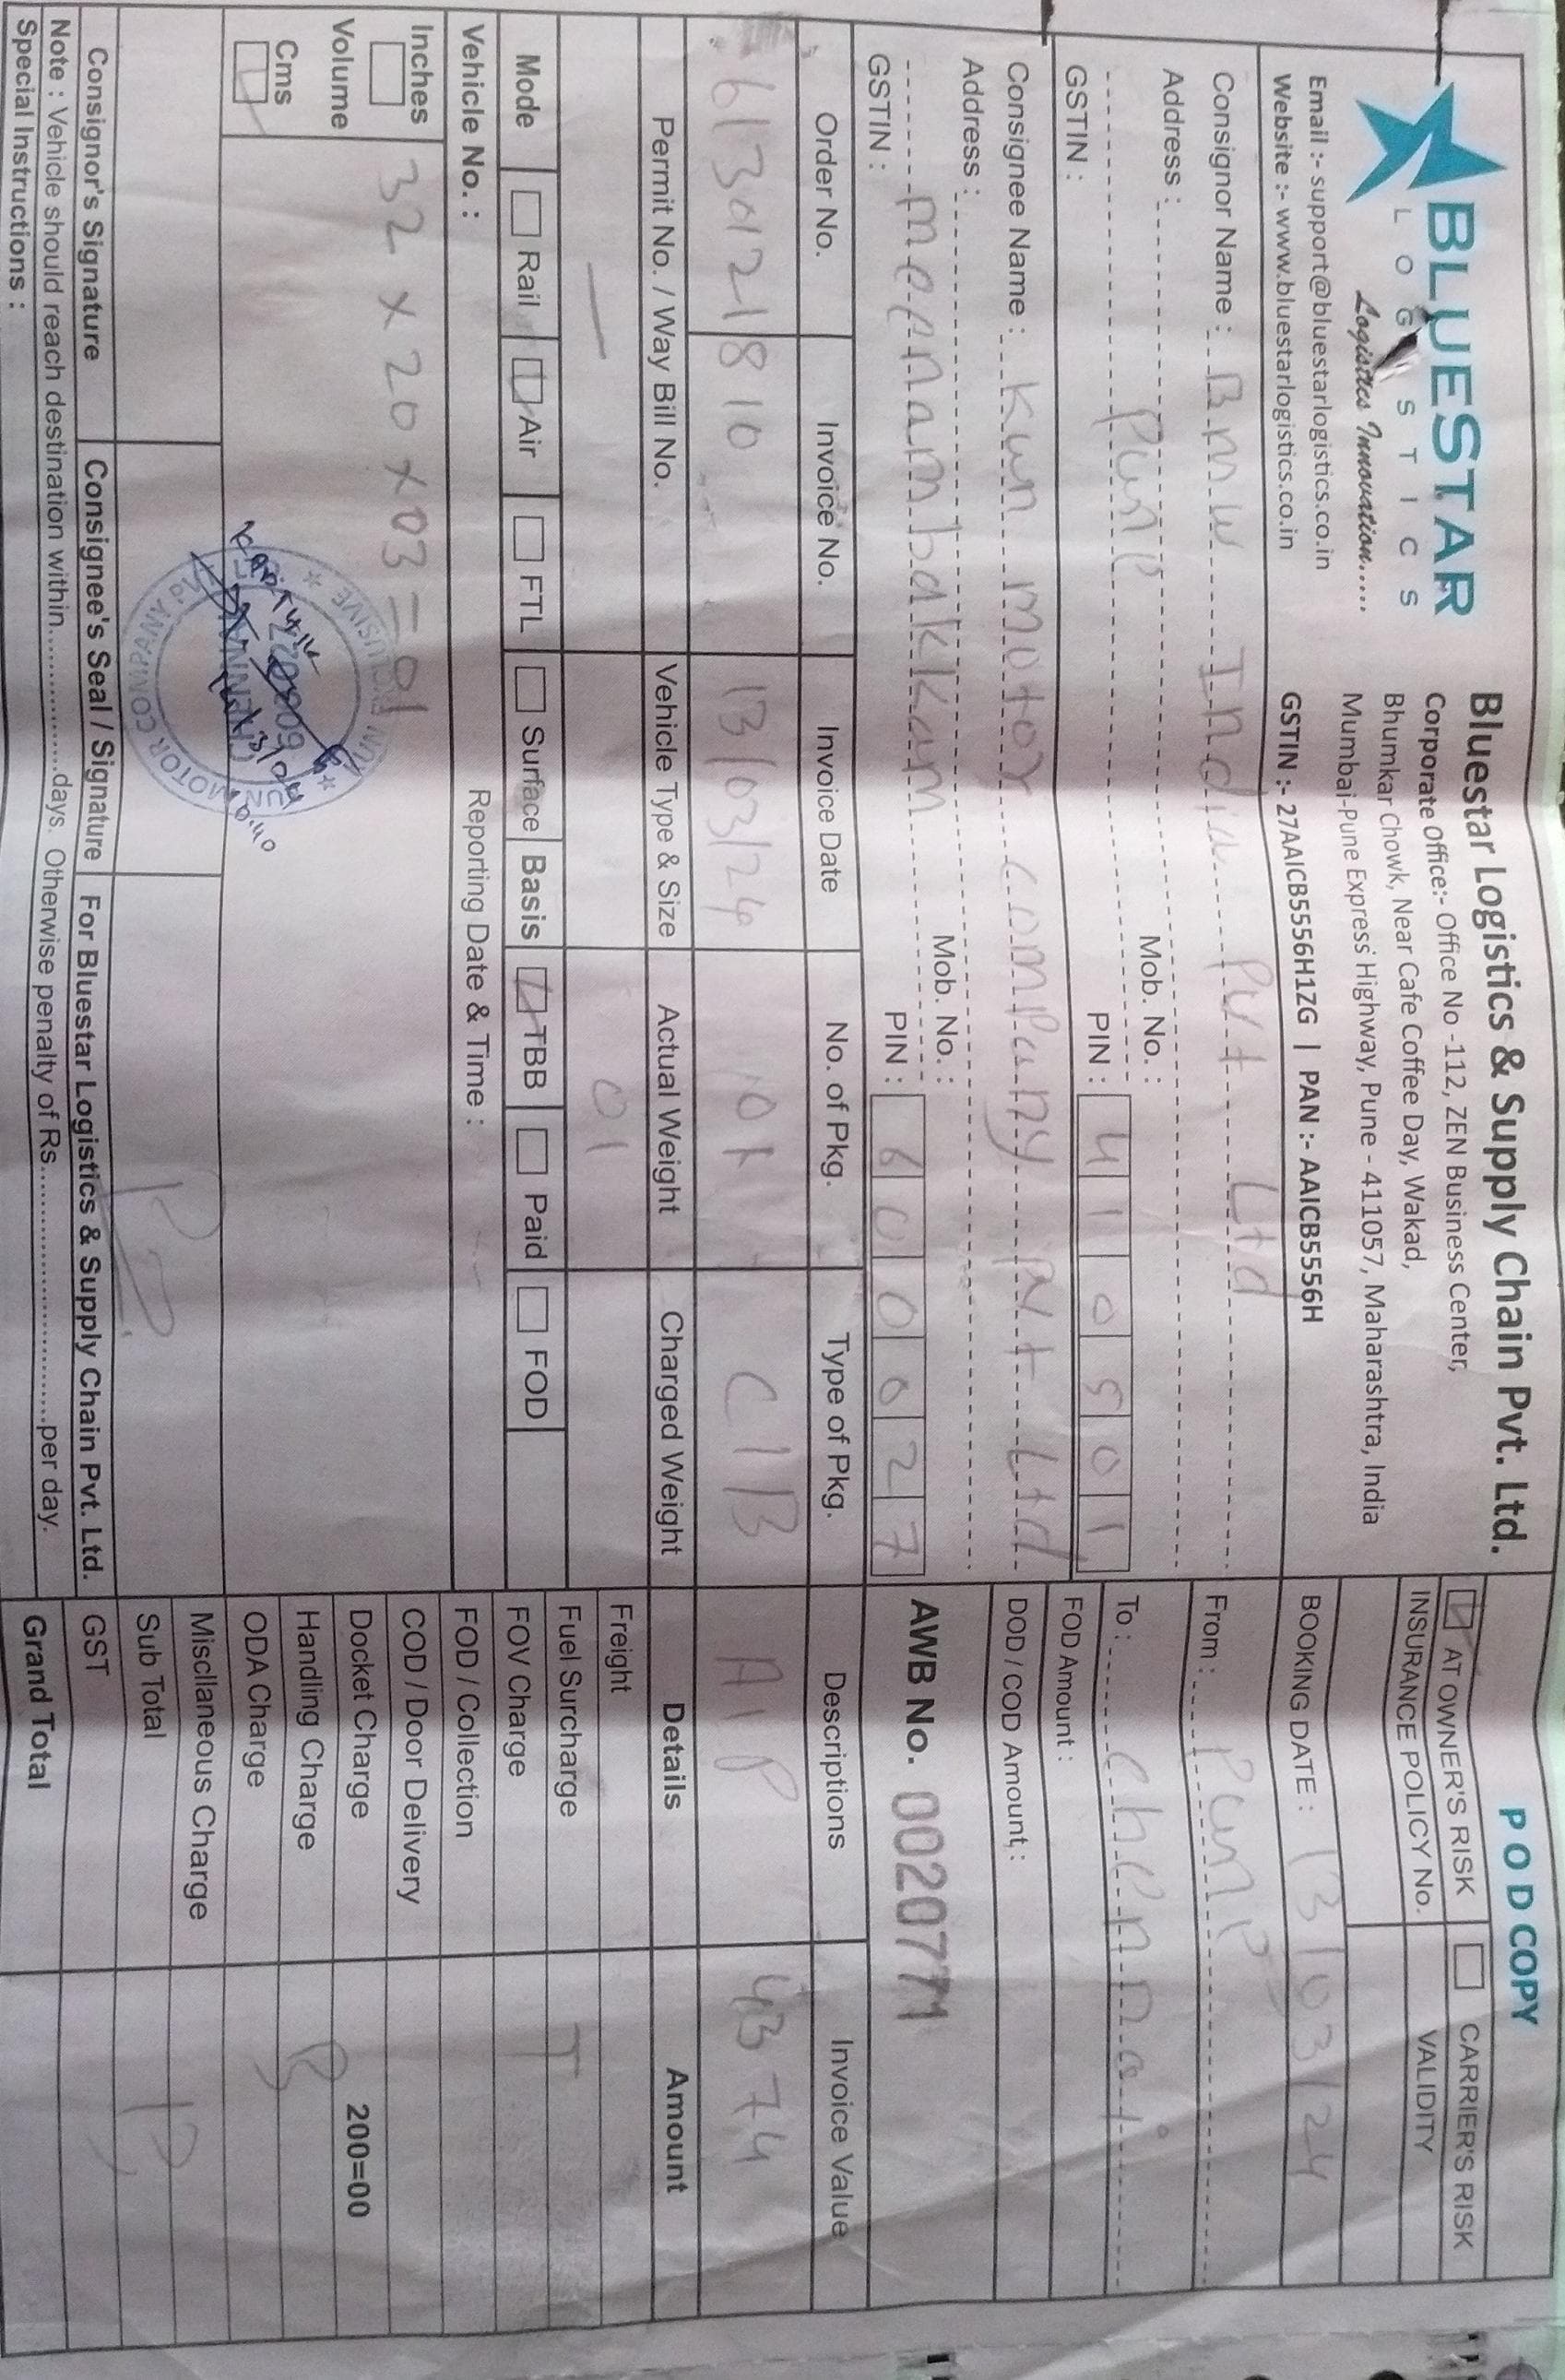 BLUESTAR
LOGISTICS
Logistics Innovation.....
Email :- support@bluestarlogistics.co.in
Website :- www.bluestarlogistics.co.in
Bluestar Logistics & Supply Chain Pvt. Ltd.
Corporate Office:- Office No -112, ZEN Business Center,
Bhumkar Chowk, Near Cafe Coffee Day, Wakad,
Mumbai-Pune Express Highway, Pune - 411057, Maharashtra, India
GSTIN :- 27AAICB5556H1ZG | PAN :- AAICB5556H
POD COPY
AT OWNER'S RISK CARRIER'S RISK
INSURANCE POLICY No. VALIDITY
BOOKING DATE : 13/03/24
From : Pune
To : Chennai
FOD Amount :
DOD / COD Amount :
AWB No. 0020771
Consignor Name : BMW India Pvt Ltd
Address :
Pune
Mob. No. :
PIN : 410501
GSTIN :
Consignee Name : Kun motor company pvt Ltd
Address :
meenambakkam
Mob. No. :
PIN : 600027
GSTIN :
Order No. Invoice No. Invoice Date No. of Pkg. Type of Pkg. Descriptions Invoice Value
13/03/24 01 C/B A/P 4374
Permit No. / Way Bill No. Vehicle Type & Size Actual Weight Charged Weight Details Amount
— 01
Mode Rail Air FTL Surface Basis TBB Paid FOD
Vehicle No. : Reporting Date & Time :
Inches
Volume
Cms
32 x 20 x 03 = 01
KUN EXCLUSIVE
KUN MOTOR COMPANY PVT LTD
600 027
CHENNAI
9:40
Freight
Fuel Surcharge T
FOV Charge
FOD / Collection
COD / Door Delivery
Docket Charge 200=00
Handling Charge B
ODA Charge
Miscllaneous Charge
Sub Total B
GST
Grand Total
Consignor's Signature Consignee's Seal / Signature For Bluestar Logistics & Supply Chain Pvt. Ltd.
Note : Vehicle should reach destination within.................days. Otherwise penalty of Rs..............................per day.
Special Instructions :